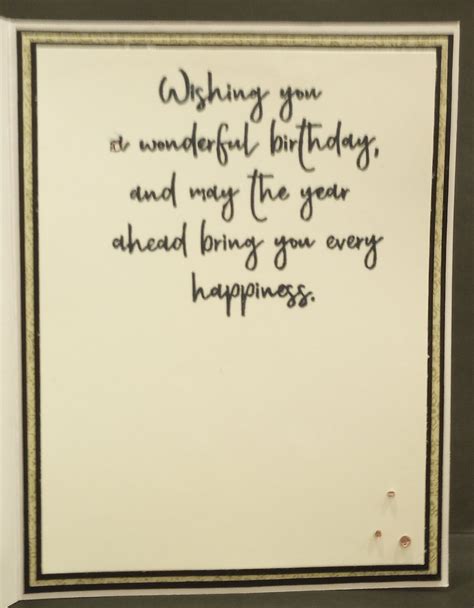 Wishing you
a wonderful birthday,
and may the year
ahead bring you every
happiness.